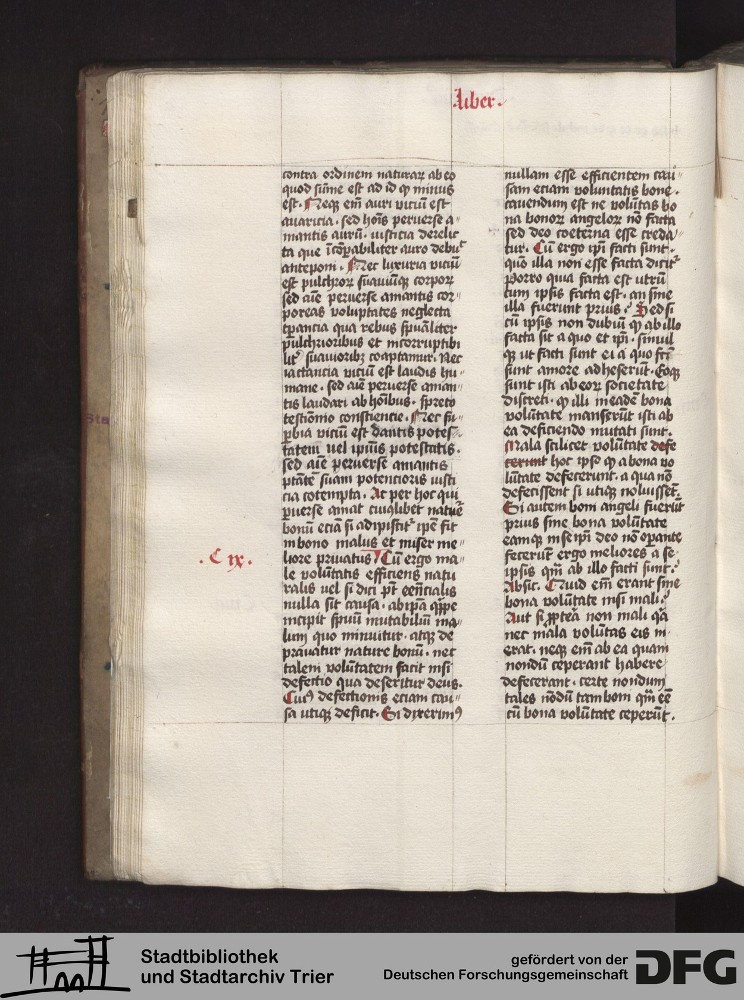 Liber.
contra ordinem naturaꝝ ab eo
quod sūme est ad id qͦ minus
est. Neqꝫ em̄ auri viciū est
auaricia. sed hoīs peruerse a-
mantis aurū. iusticia derelic
ta que īcōpabiliter auro debuͭ
anteponi. Nec luxuria viciū
est pulchroꝝ suauiūqꝫ corpoꝝ
sed aīe peruerse amantis cor-
poreas voluptates neglecta
tꝑancia qua rebus spūaliter
pulchrioribus et incorruptibi
litͬ suauioribꝫ coaptamur. Nec
iactancia viciū est laudis hu-
mane. sed aīe peruerse aman-
tis laudari ab hōibus. spreto
testiōnio consciencie. Nec su-
ꝑbia viciū est dantis potes-
tatem vel ipīus potestatis.
sed aīe peruerse amantis
ptātē suam potencioris iusti
cia cōtempta. Ac per hoc qui
ꝑuerse amat cuiuslibet nature
bonū eciā si adipiscitͬ ipē fit
in bono malus et miser me-
liore priuatus Cū ergo ma-
.C ix.
le volūtatis efficiens natu
ralis vel si dici pt̄ eēncialis
nulla sit causa. ab ipā qͥppe
incipit spūū mutabiliū ma-
lum quo minuitur. atqꝫ de
prauatur nature bonū. nec
talem voluntatem facit nisi
defectio qua deseritur deus.
Cuiꝰ defectionis eciam cau-
sa utiqꝫ deficit. Si dixerimꝰ
nullam esse efficientem cau-
sam eciam voluntatis bone.
cauendum est ne volūtas bo
na bonoꝝ angeloꝝ nō facta
sed deo coeterna esse creda
tur. Cū ergo ip̄i facti sunt.
quō illa non esse facta dicitͬ
Porro quia facta est utrū
cum ipsis facta est. an sine
illa fuerunt prius. Sed si
cū ipsis non dubiū qͦ ab illo
facta sit a quo et ip̄i. simul
qꝫ ut facti sunt ei a quo fc̄i
sunt amore adheserūt. Eoqꝫ
sunt isti ab eoꝝ societate
discreti. qͦ illi in eadē bona
volūtate manserūt isti ab
ea deficiendo mutati sunt.
Mala scilicet volūtate defe
cerunt hoc ipso qͦ a bona vo
lūtate defecerunt. a qua nō
defecissent si utiqꝫ noluissēt.
Si autem boni angeli fuerūt
prius sine bona volūtate
eamqꝫ in se ip̄i deo nō oꝑante
fecerūt ergo meliores a se
ipsis qm̄ ab illo facti sunt.
Absit. Quid em̄ erant sine
bona volūtate nisi mali.
Aut si ꝓpterea non mali qͥa
nec mala volūtas eis in-
erat. neqꝫ em̄ ab ea quam
nondū ceperant habere
defecerant. certe nondum
tales nōdū tam boni qm̄ eē
cū bona volūtate ceperūt.
Stadtbibliothek
und Stadtarchiv Trier
gefördert von der
Deutschen Forschungsgemeinschaft
DFG